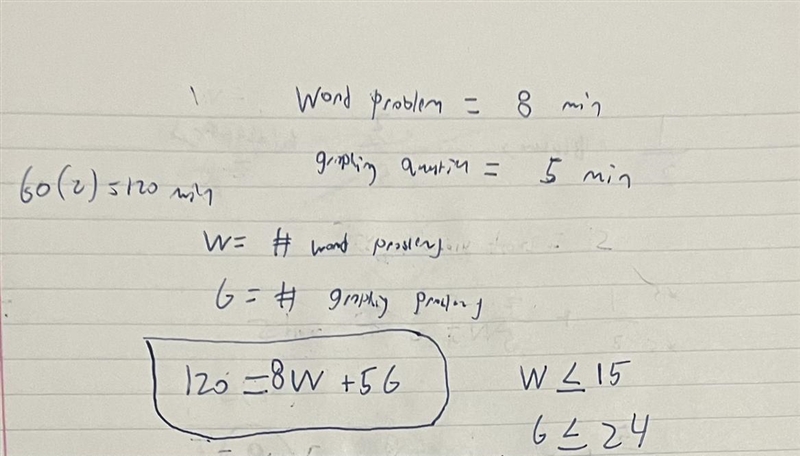 Word problem = 8 min
graphing question = 5 min
60(2)=120 min
W= # word problems
G= # graphing problems
120=8W+5G
W ≤ 15
G ≤ 24